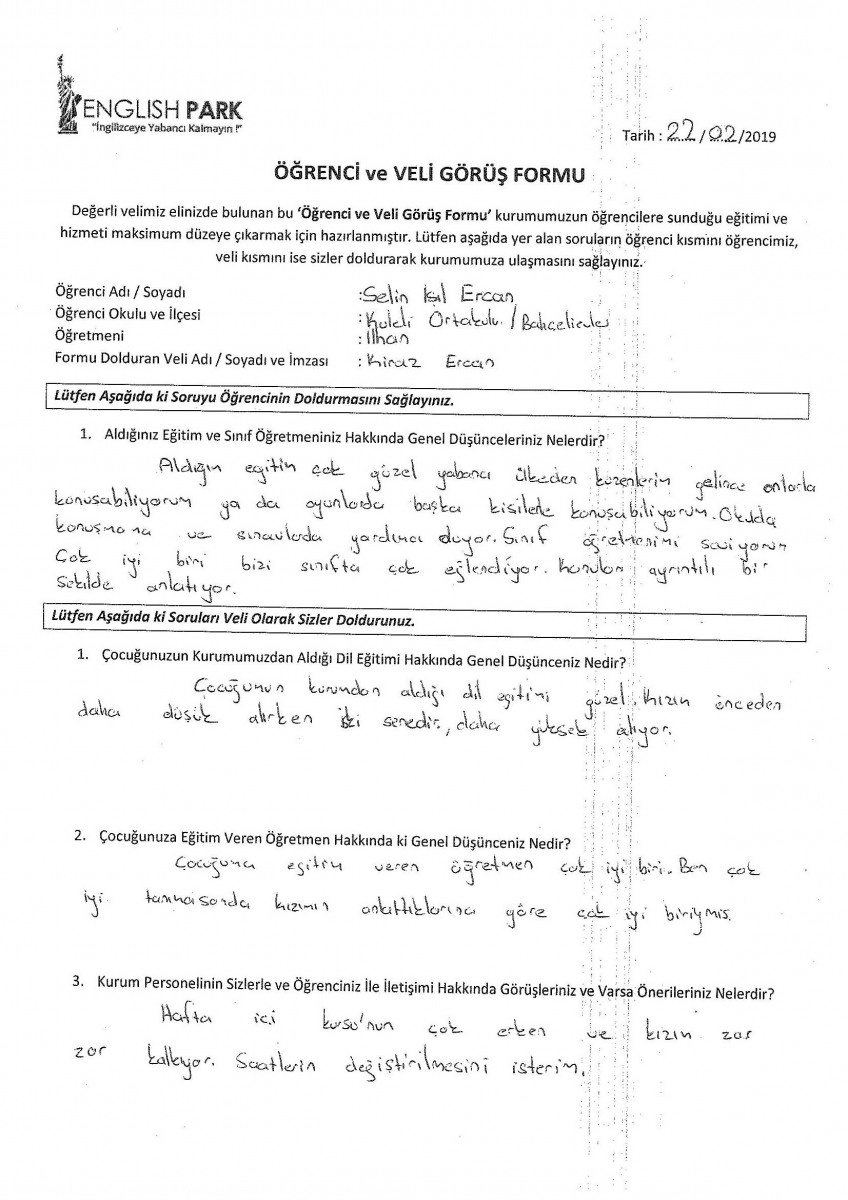 ENGLISH PARK
"İngilizceye Yabancı Kalmayın !"
Tarih : 22/02/2019
ÖĞRENCİ ve VELİ GÖRÜŞ FORMU
Değerli velimiz elinizde bulunan bu 'Öğrenci ve Veli Görüş Formu' kurumumuzun öğrencilere sunduğu eğitimi ve
hizmeti maksimum düzeye çıkarmak için hazırlanmıştır. Lütfen aşağıda yer alan soruların öğrenci kısmını öğrencimiz,
veli kısmını ise sizler doldurarak kurumumuza ulaşmasını sağlayınız.
Öğrenci Adı / Soyadı :Selin Işıl Ercan
Öğrenci Okulu ve İlçesi :Kuleli Ortakulu / Bahçelievler
Öğretmeni : İlhan
Formu Dolduran Veli Adı / Soyadı ve İmzası : Kiraz Ercan
Lütfen Aşağıda ki Soruyu Öğrencinin Doldurmasını Sağlayınız.
1. Aldığınız Eğitim ve Sınıf Öğretmeniniz Hakkında Genel Düşünceleriniz Nelerdir?
Aldığım eğitim çok güzel yabancı ülkeden kuzenlerim gelince onlarla
konuşabiliyorum ya da oyunlarda başka kişilerle konuşabiliyorum. Okulda
konuşmama ve sınavlarda yardımcı oluyor. Sınıf öğretmenimi seviyorum
Çok iyi biri bizi sınıfta çok eğlendiyor. Konuları ayrıntılı bir
şekilde anlatıyor.
Lütfen Aşağıda ki Soruları Veli Olarak Sizler Doldurunuz.
1. Çocuğunuzun Kurumumuzdan Aldığı Dil Eğitimi Hakkında Genel Düşünceniz Nedir?
Çocuğumun kurumdan aldığı dil eğitimi güzel. Kızım önceden
daha düşük alırken iki senedir, daha yüksek alıyor.
2. Çocuğunuza Eğitim Veren Öğretmen Hakkında ki Genel Düşünceniz Nedir?
Çocuğuma eğitim veren öğretmen çok iyi biri. Ben çok
iyi tanımasamda kızımın anlattıklarına göre çok iyi biriymiş.
3. Kurum Personelinin Sizlerle ve Öğrenciniz İle İletişimi Hakkında Görüşleriniz ve Varsa Önerileriniz Nelerdir?
Hafta içi kursu'nun çok erken ve kızım zar
zor kalkıyor. Saatlerin değiştirilmesini isterim.